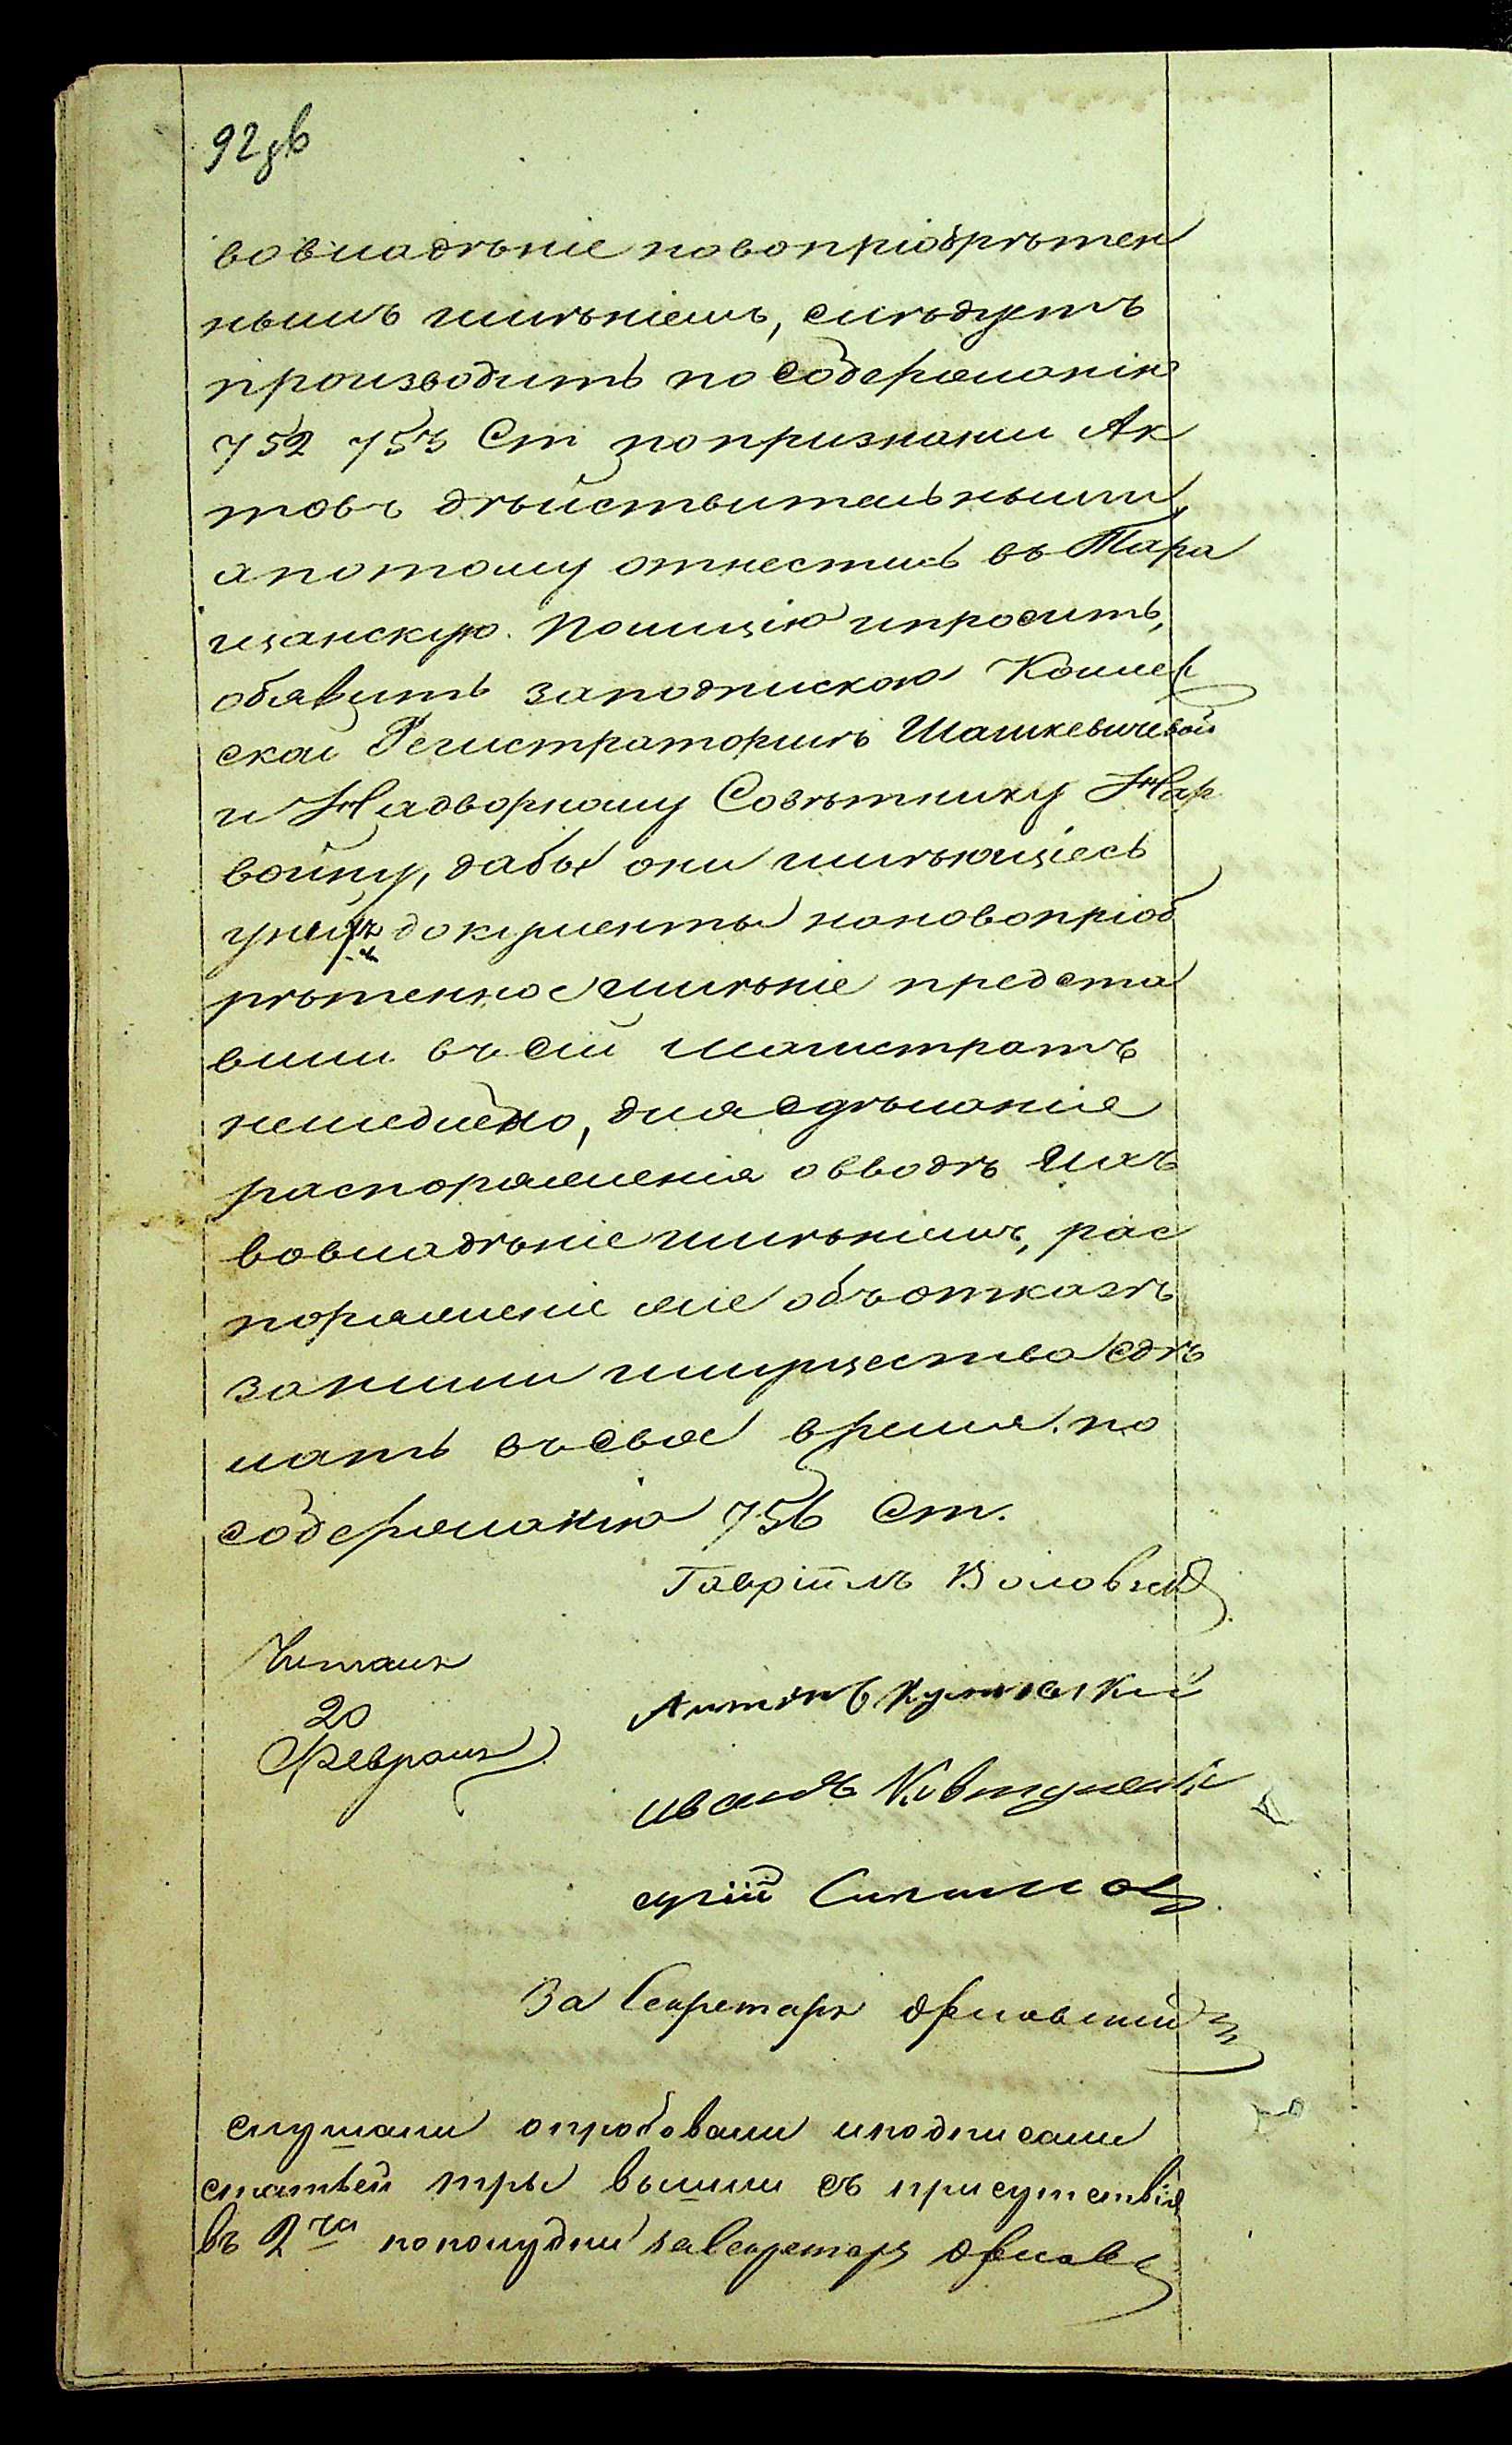 92 зв
вовладѣніе новопріобрѣтен
нымъ имѣніемъ, слѣдуетъ
производить по содержанію
752 753 Ст попризнаніи Ак
товъ дѣйствительными,
апотому отнестись въ Тара
щанскую Полицію ипросить,
обявить заподпискою Коллеж
ской Регистраторшѣ Шашкевичевой
и Надворному Совѣтнику Нар
войту, дабы они имѣющіесь
уних документы нановопріоб
рѣтенное имѣніе предста
вили въ сей Магистратъ
немедленно, для сдѣланія
распоряженія овводѣ ихъ
вовладѣніе имѣніемъ, рас
поряженіе же объотказѣ
заними имущества сдѣ
лать въ свое время по
содержанію 756 Ст.
Гавріилъ
Читалъ
20
Февраля
Антонъ
Иванъ
За Секретаря
слушали опробовали иподписали
статьей три вышли съ присутствія
въ 2 ча пополудни за Секретаря